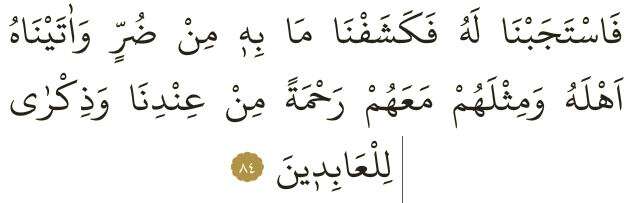 فَاسْتَجَبْنَا لَهُ فَكَشَفْنَا مَا بِهٖ مِنْ ضُرٍّ وَاٰتَيْنَاهُ
اَهْلَهُ وَمِثْلَهُمْ مَعَهُمْ رَحْمَةً مِنْ عِنْدِنَا وَذِكْرٰى
لِلْعَابِدٖينَ ٨٤